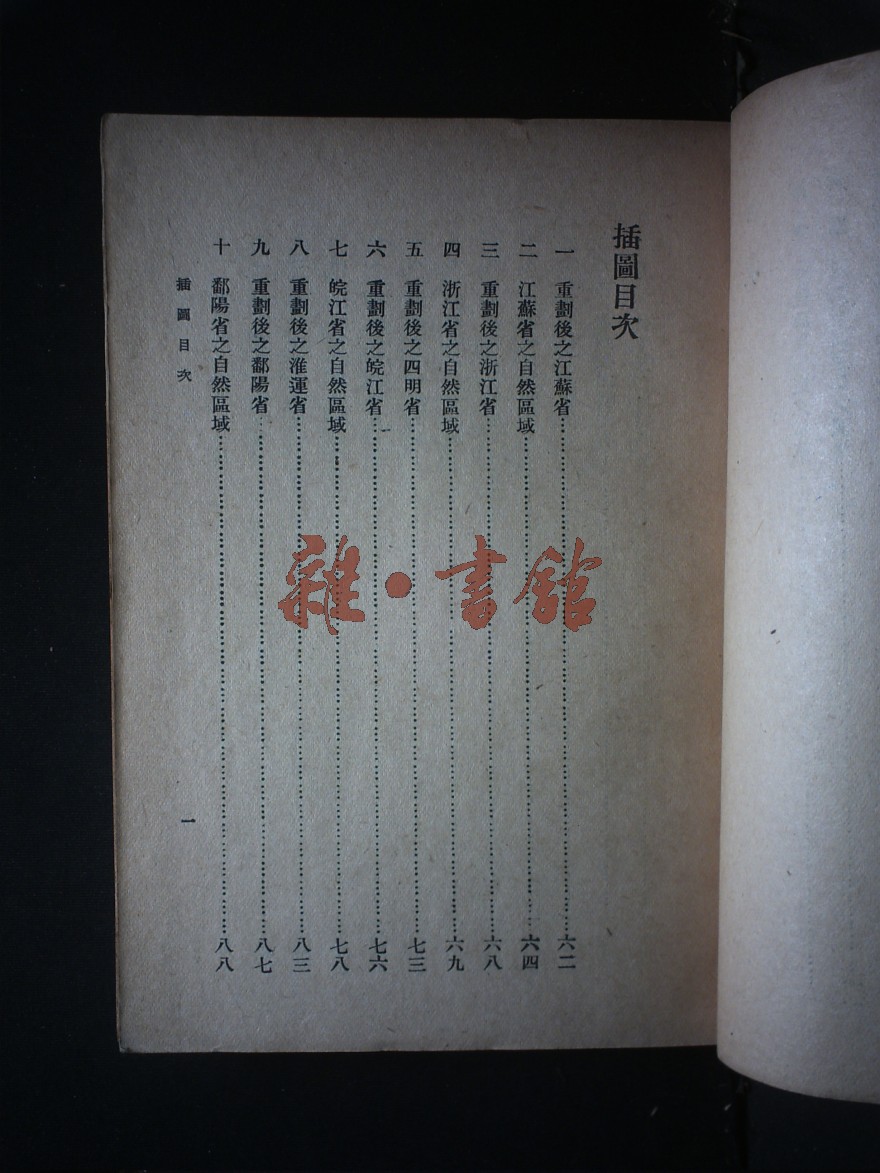 插圖目次
一　重劃後之江蘇省……………………六二
二　江蘇省之自然區域……………………六四
三　重劃後之浙江省……………………六八
四　浙江省之自然區域……………………六九
五　重劃後之四明省……………………七三
六　重劃後之皖江省……………………七六
七　皖江省之自然區域……………………七八
八　重劃後之淮運省……………………八三
九　重劃後之鄱陽省……………………八七
十　鄱陽省之自然區域……………………八八
插圖目次　一
雜·書館